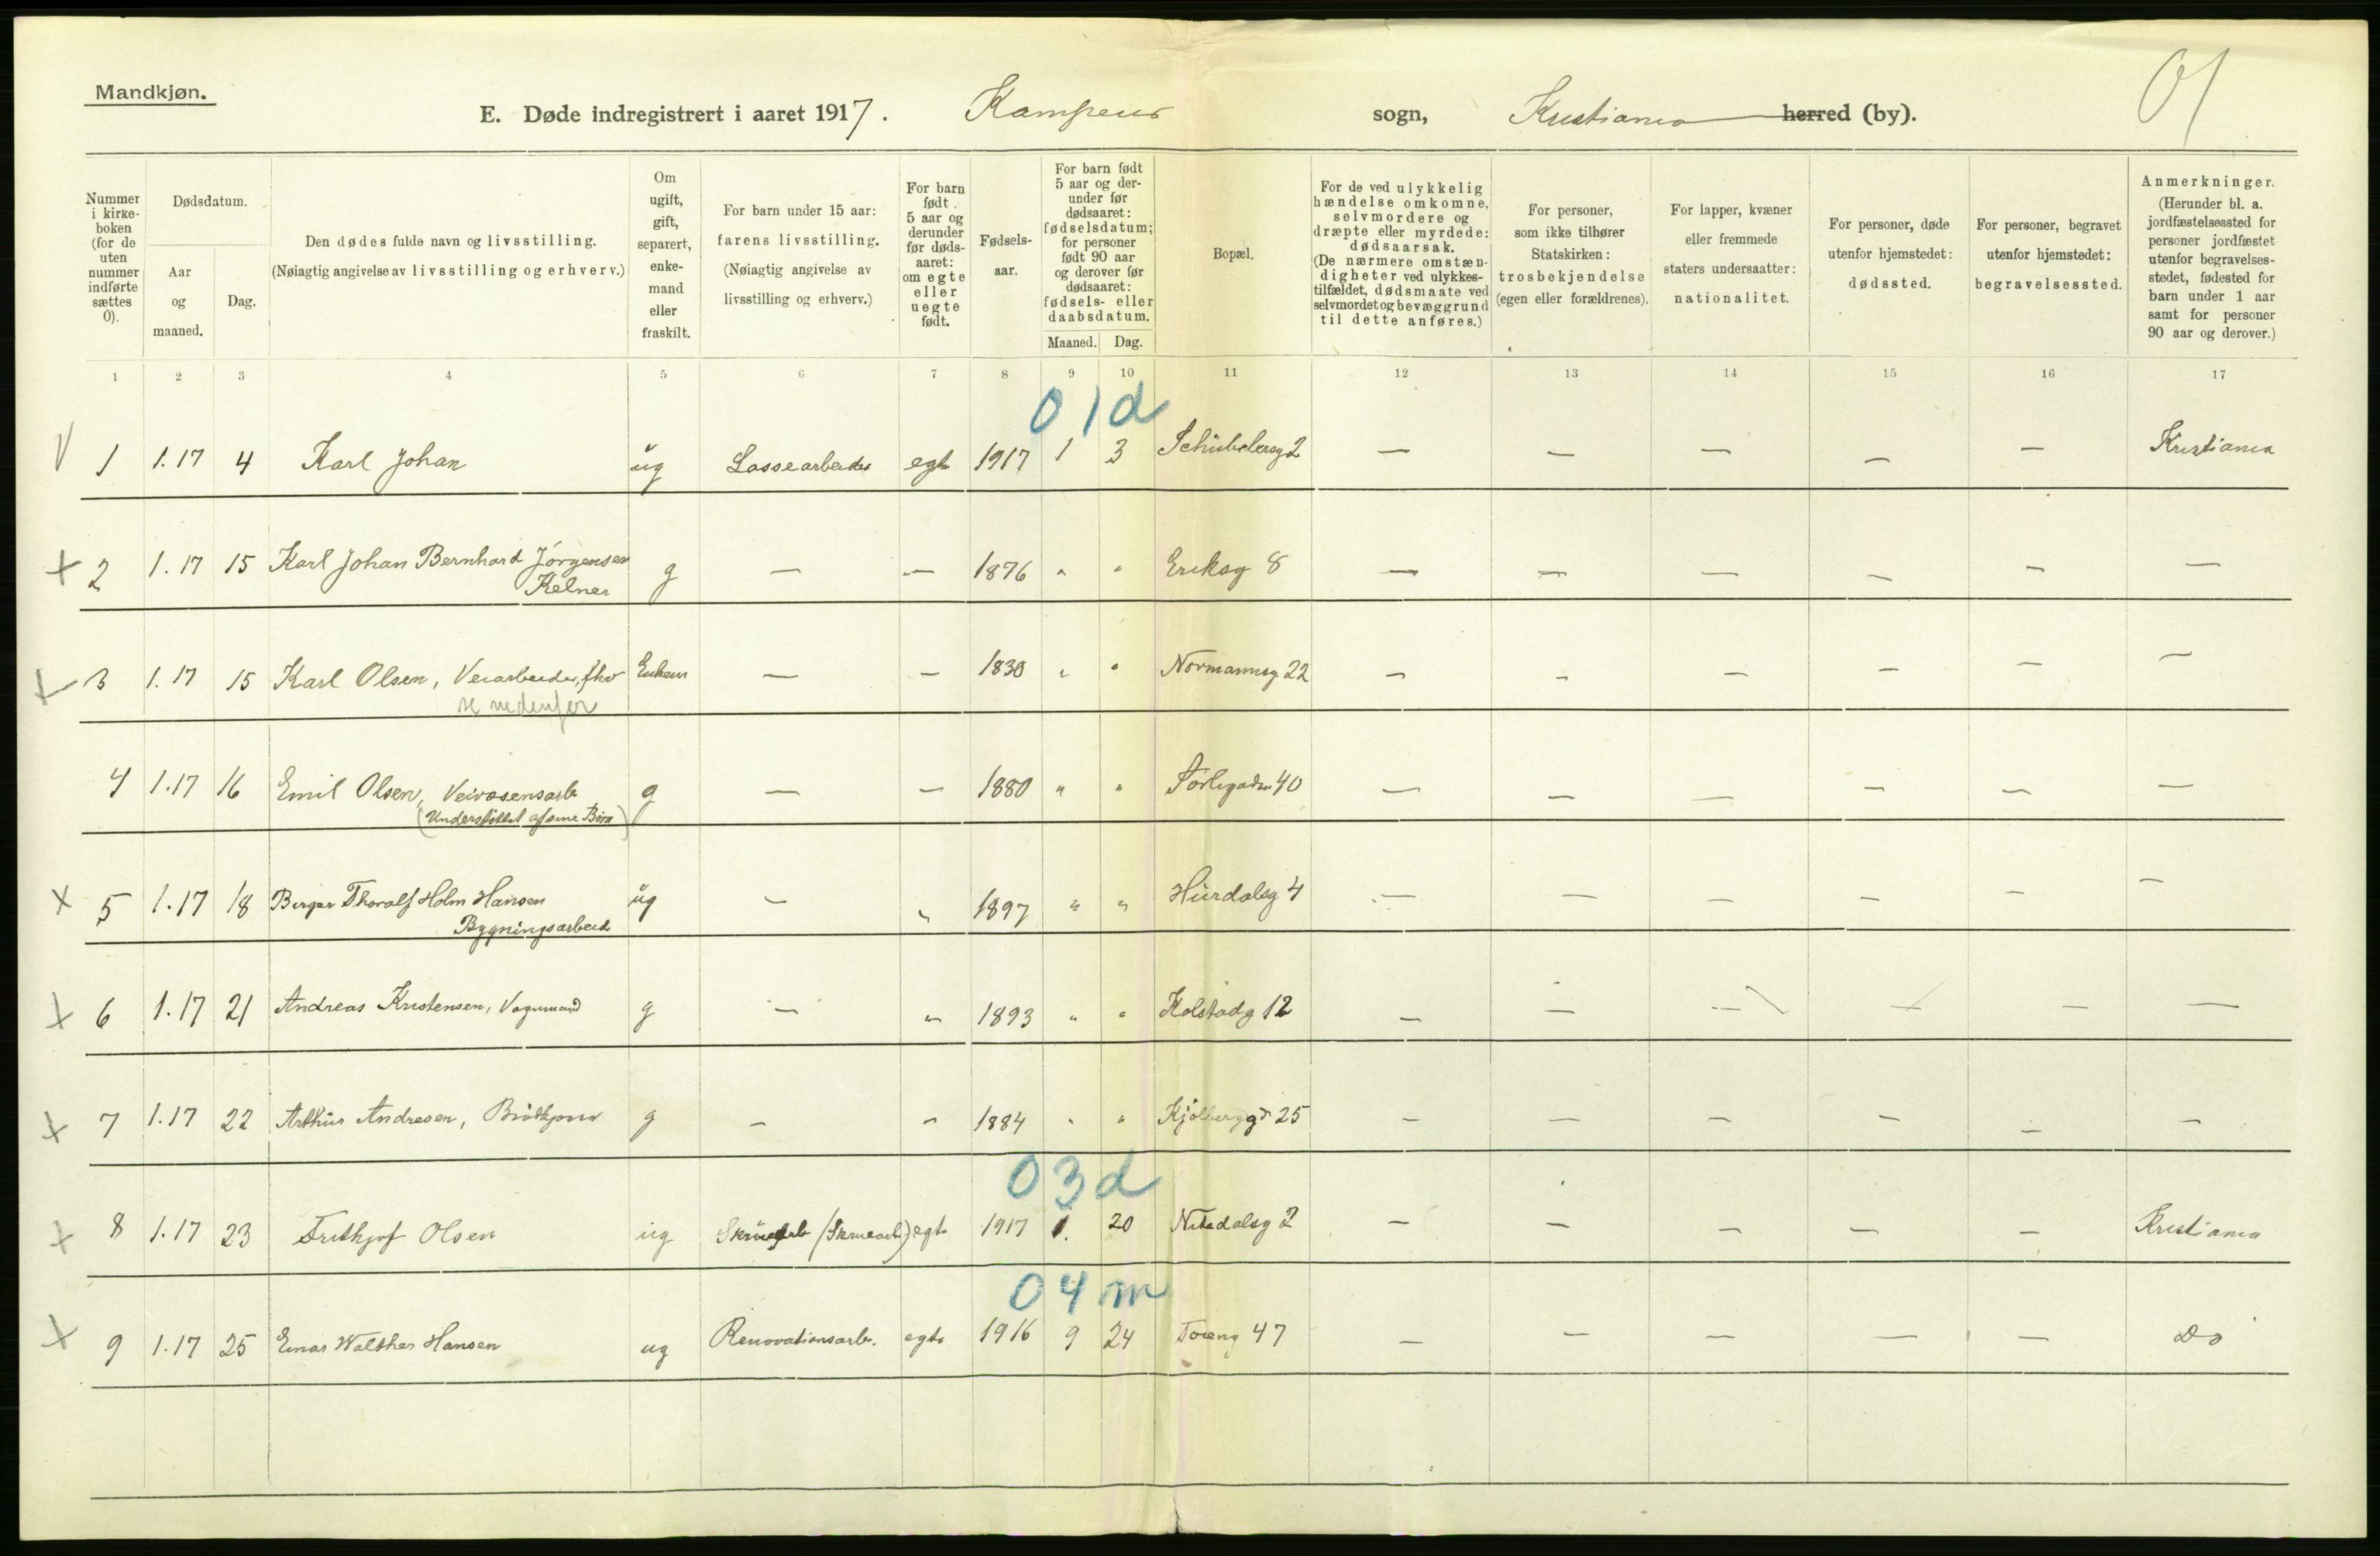 Mandkjøn.
E. Døde indregistrert i aaret 1917. Kampens sogn, Kristiania herred (by).
01
Nummer i kirke-boken (for de uten nummer indførte sættes 0).
Dødsdatum.
Aar og maaned.
Dag.
Den dødes fulde navn og livsstilling.
(Nøiagtig angivelse av livsstilling og erhverv.)
Om ugift, gift, separert, enke-mand eller fraskilt.
For barn under 15 aar: farens livsstilling.
(Nøiagtig angivelse av livsstilling og erhverv.)
For barn født 5 aar og derunder før døds-aaret: om egte eller uegte født.
Fødsels-aar.
For barn født 5 aar og der-under før dødsaaret: fødselsdatum; for personer født 90 aar og derover før dødsaaret: fødsels- eller daabsdatum.
Maaned. Dag.
Bopæl.
For de ved ulykkelig hændelse omkomne, selvmordere og dræpte eller myrdede: dødsaarsak. (De nærmere omstæn-digheter ved ulykkes-tilfældet, dødsmaate ved selvmordet og bevæggrund til dette anføres.)
For personer, som ikke tilhører Statskirken: trosbekjendelse (egen eller forældrenes).
For lapper, kvæner eller fremmede staters undersaatter: nationalitet.
For personer, døde utenfor hjemstedet: dødssted.
For personer, begravet utenfor hjemstedet: begravelsessted.
Anmerkninger. (Herunder bl. a. jordfæstelsessted for personer jordfæstet utenfor begravelses-stedet, fødested for barn under 1 aar samt for personer 90 aar og derover.)
1 2 3 4 5 6 7 8 9 10 11 12 13 14 15 16 17
01d
1 1.17 4 Karl Johan ug Lossearbeider egte 1917 1 3 Schübelersg 2 — — — — — Kristiania
2 1.17 15 Karl Johan Bernhard Jörgensen g — — 1876 " " Eriksg 8 — — — — — —
Kelner
3 1.17 15 Karl Olsen, Veiarbeider, fhv Enkem — — 1830 " " Normannsg 22 — — — — — —
se nedenfor
4 1.17 16 Emil Olsen, Veivæsensarb g — — 1880 " " 40 — — — — — —
(Understöttet af sine Börn)
5 1.17 18 Birger Thoralf Holm Hansen ug — " 1897 " " Hurdalsg 4 — — — — — —
Bygningsarbeid
6 1.17 21 Andreas Kristensen, Vognmand g — " 1893 " " Kolstadg 12 — — — — — —
7 1.17 22 Arthur Andresen, Brödkjörer g — " 1884 " " Kjölberggd 25 — — — — — —
03d
8 1.17 23 Frithjof Olsen ug (Skruearb) egte 1917 1. 20 Nitedalsg 2 — — — — — Kristiania
04m
9 1.17 25 Einar Walther Hansen ug Renovationsarb. egte 1916 9 24 Töieng 47 — — — — — Do